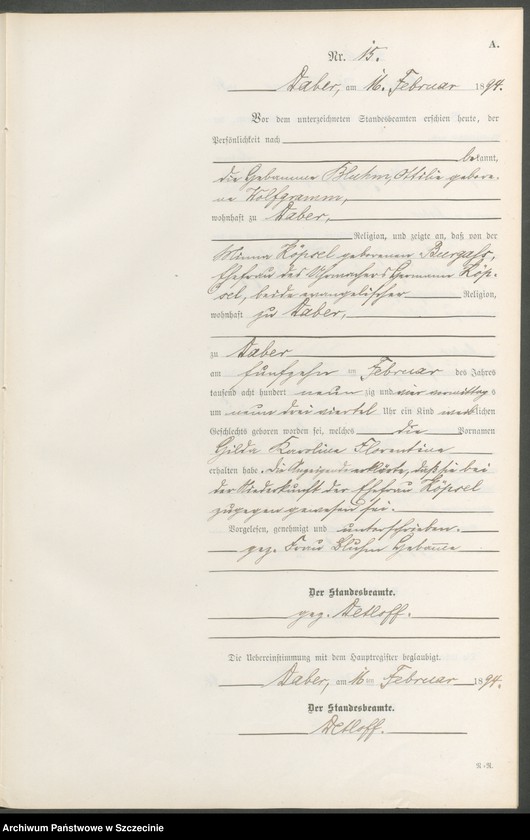 A.
Nr. 15.
Daber, am 16. Februar 1894.
Vor dem unterzeichneten Standesbeamten erschien heute, der
Persönlichkeit nach
bekannt,
die Hebamme Bluhm, Ottilie gebore-
ne Wolfgramm,
wohnhaft zu Daber,
Religion, und zeigte an, daß von der
Minna Köpsel geborenen Burgahs,
Ehefrau des Uhrmachers Hermann Köp-
sel, beide evangelischer Religion,
wohnhaft zu Daber,
zu Daber
am fünfzehn ten Februar des Jahres
tausend acht hundert neun zig und vier vormittags
um neun drei viertel Uhr ein Kind weiblichen
Geschlechts geboren worden sei, welches die Vornamen
Gilda Karoline Florentine
erhalten habe. Die Anzeigende erklärte, daß sie bei
der Niederkunft der Ehefrau Köpsel
zugegen gewesen sei.
Vorgelesen, genehmigt und unterschrieben.
gez. Frau Bluhm
Der Standesbeamte.
gez. Detloff.
Die Uebereinstimmung mit dem Hauptregister beglaubigt.
Daber, am 16 ten Februar 1894.
Der Standesbeamte.
Detloff.
N.-N.
Archiwum Państwowe w Szczecinie